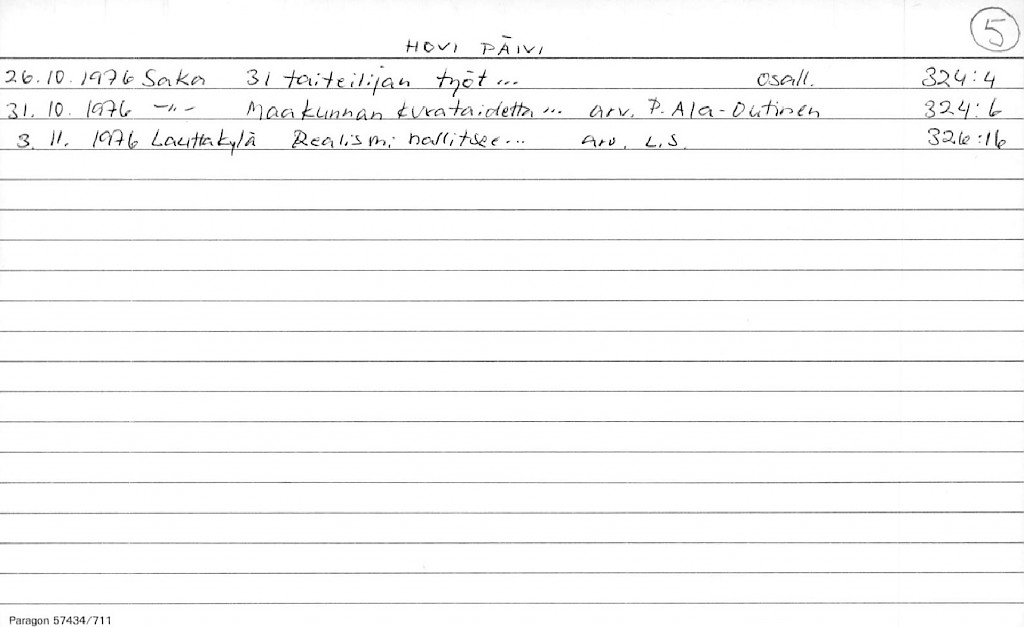 5
HOVI PÄIVI
26.10.1976 SaKa 31 taiteilijan työt... osall. 324:4
31.10.1976 -"- Maakunnan kuvataidetta... arv. P. Ala-Outinen 324:6
3.11.1976 Lauttakylä Realismi hallitsee... arv. L.S. 326:16
Paragon 57434/711